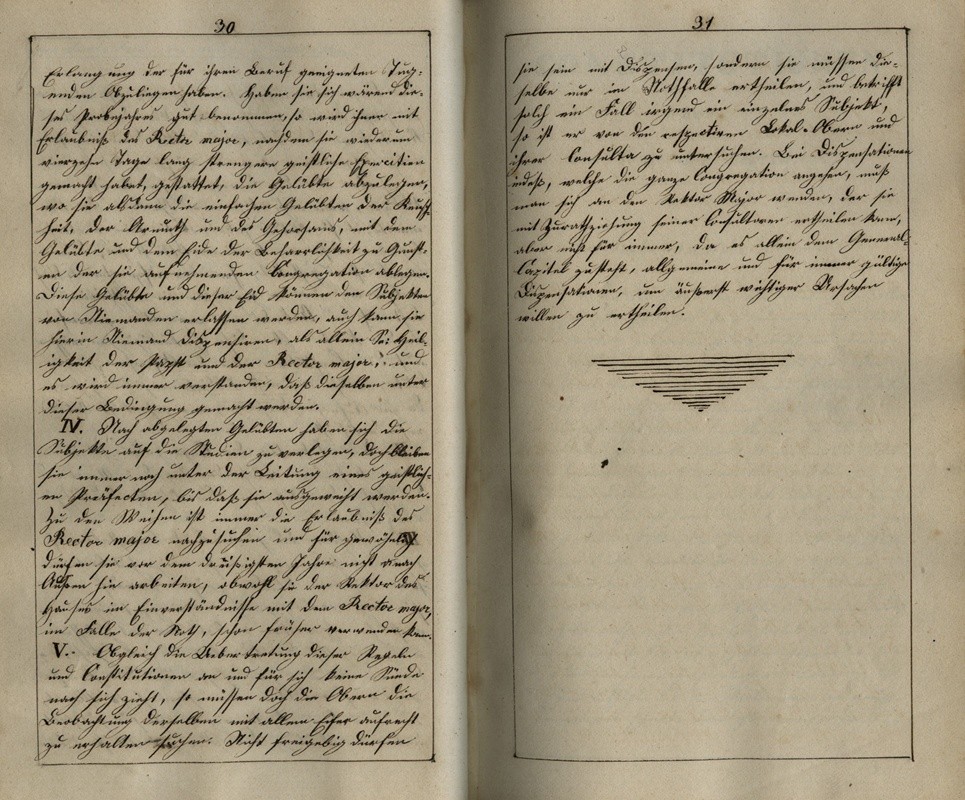 30
Erlangung der für ihren Beruf geeigneten Tug-
enden Obzuliegen haben. Haben sie sich wärend die-
ses Probejahres gut benommen, so wird ihnen mit
Erlaubniß des Rector major, nachdem sie wiederum
vierzehn Tage lang strengere geistliche Exercitien
gemacht habet, gestattet, die Gelübte abzulegen,
wo sie alsdann die einfachen Gelübten der Keusch-
heit, der Armuth und des Gehorsams, mit dem
Gelübte und dem Eide der Beharrlichkeit zu Gunst-
en der sie aufnehmenden Congregation ablegen.
Diese Gelübte und dieser Eid können den Subjekten
von Niemanden erlassen werden, auch kann sie
hierin Niemand dispensiren, als allein Se: Heil-
igkeit der Papst und der Rector major, und
es wird immer verstanden, daß dieselben unter
dieser Bedingung gemacht werden.
IV. Nach abgelegten Gelübten haben sich die
Subjekte auf die Studien zu verlegen, doch bleiben
sie immer noch unter der Leitung eines geistlich-
en Präfecten, bis daß sie ausgeweiht werden.
Zu den Weihen ist immer die Erlaubniß des
Rector major nachzusuchen und für gewöhnlich
dürfen sie vor dem dreißigsten Jahre nicht nach
Außen hin arbeiten, obwohl sie der Rektor des
Hauses im Einverständnisse mit dem Rector major,
im Falle der Noth, schon früher verwenden kann.
V. Obgleich die Uebertretung dieser Regeln
und Constitutionen an und für sich keine Sünde
nach sich zieht, so müssen doch die Obern die
Beobachtung derselben mit allem Eifer aufrecht
zu erhalten suchen. Nicht freigebig dürfen
31
sie sein mit Dispensen, sondern sie müssen die-
selbe nur im Nothfalle ertheilen, und betrifft
solch ein Fall irgend ein einzelnes Subjekt,
so ist er von den respectiven Lokal-Obern und
ihrer Consulta zu untersuchen. Bei Dispensationen
indeß, welche die ganze Congregation angehen, muß
man sich an den Rektor Major wenden, der sie
mit Zurathziehung seiner Consultoren ertheilen kann,
aber nicht für immer, da es allein dem General-
Capitel zusteht, allgemeine und für immer gültige
Dispensationen, um äußerst wichtiger Ursachen
willen zu ertheilen.